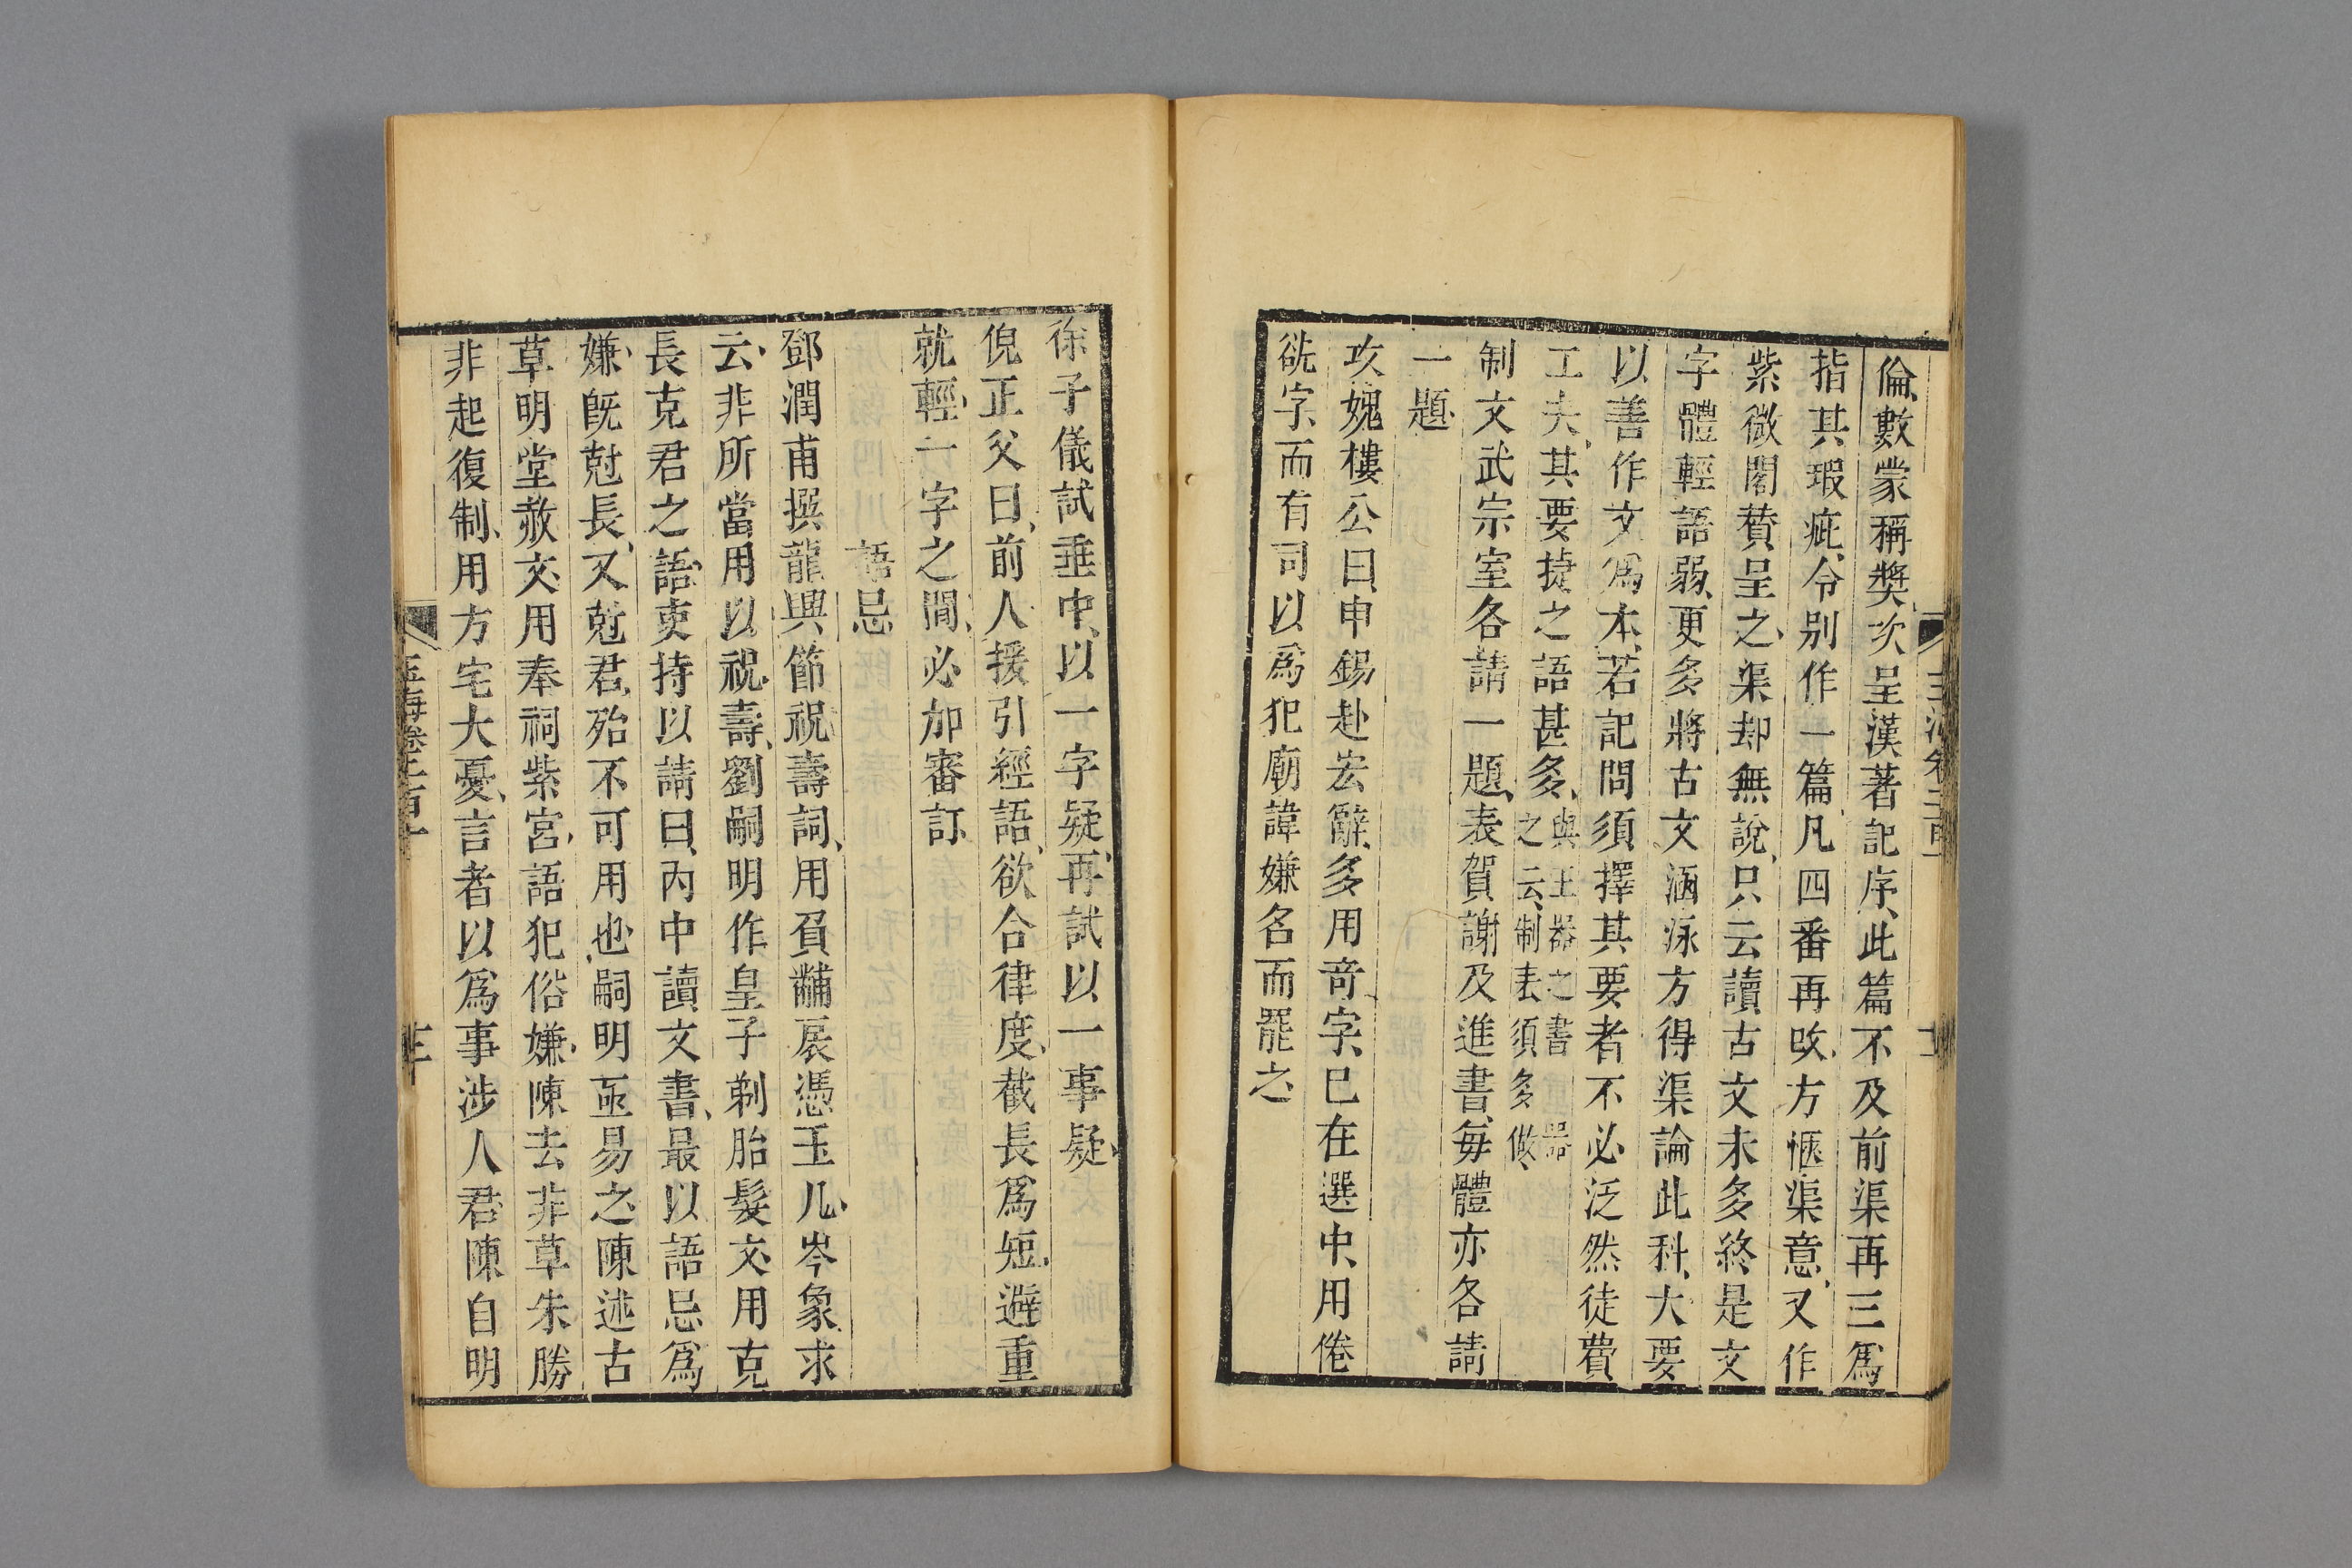 倫、數蒙稱奬、次呈漢著記序、此篇不及前渠再三爲
指其瑕疵、令别作一篇、凡四番再改、方愜渠意、又作
紫微閣賛呈之、渠却無說、只云讀古文未多終是文
字體輕語弱、更多將古文涵泳方得渠論此科、大要
以善作文爲本、若記問須擇其要者不必泛然徒費
工夫、其要捷之語甚多、與王器之書
之云、制表須多做、
制文武宗室各請一題、表賀謝及進書、每體亦各請
一題
攻媿樓公曰、申錫赴宏辭、多用奇字、已在選中、用倦
㲋字、而有司以爲犯廟諱嫌名而罷之
徐子儀試垂中、以一字疑、再試以一事疑、
倪正父曰、前人援引經語、欲合律度、截長爲短、避重
就輕、一字之間、必加審訂
語忌
鄧潤甫撰龍興節祝壽詞、用負黼扆憑玉几、岑象求
云、非所當用以祝壽、劉嗣明作皇子剃胎髮文、用克
長克君之語、吏持以請曰、内中讀文書、最以語忌爲
嫌、旣尅長、又尅君、殆不可用也、嗣明亟易之、陳述古
草明堂赦文、用奉祠紫宮、語犯俗嫌、陳去非草朱勝
非起復制、用方宅大憂、言者以爲事涉人君、陳自明
玉海卷二百